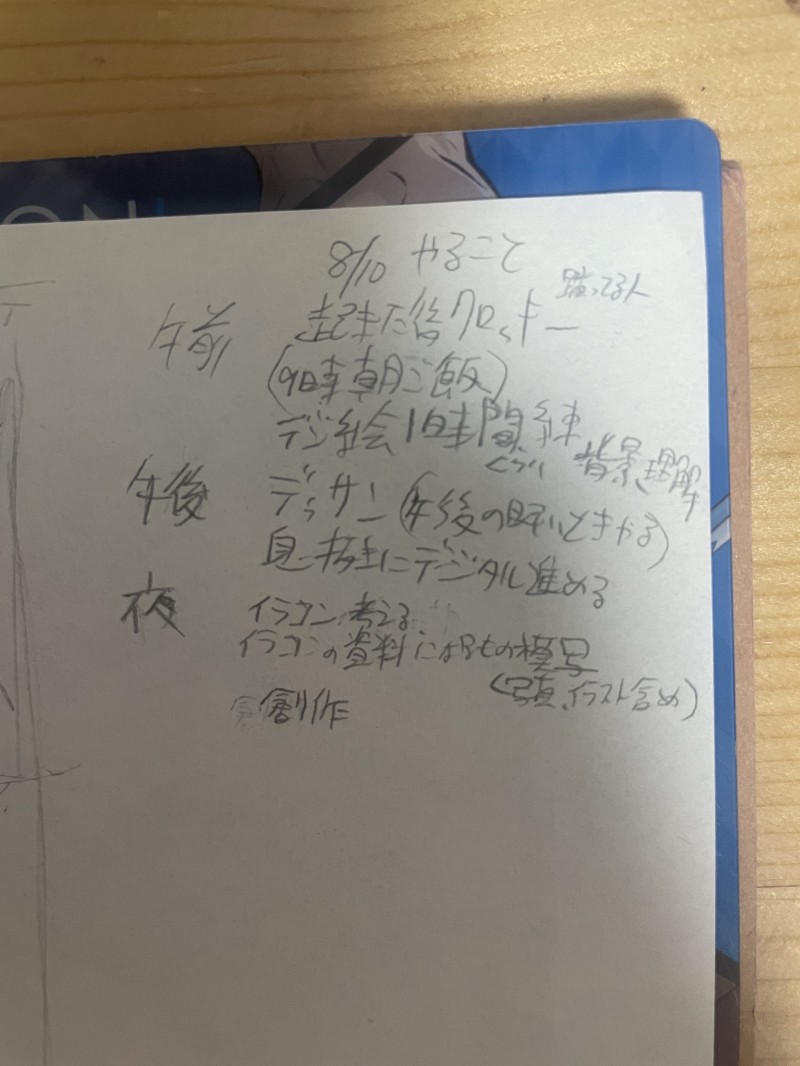 ON
8/10 やること
午前 起きた後クロッキー
(9時朝ご飯)
デジ絵1時間練
ぐらい 背景、理解
午後 デッサン(午後の眠いときやる)
息抜きにデジタル進める
夜 イラコン考える
イラコンの資料になるもの模写
(写真、イラスト含め)
創作